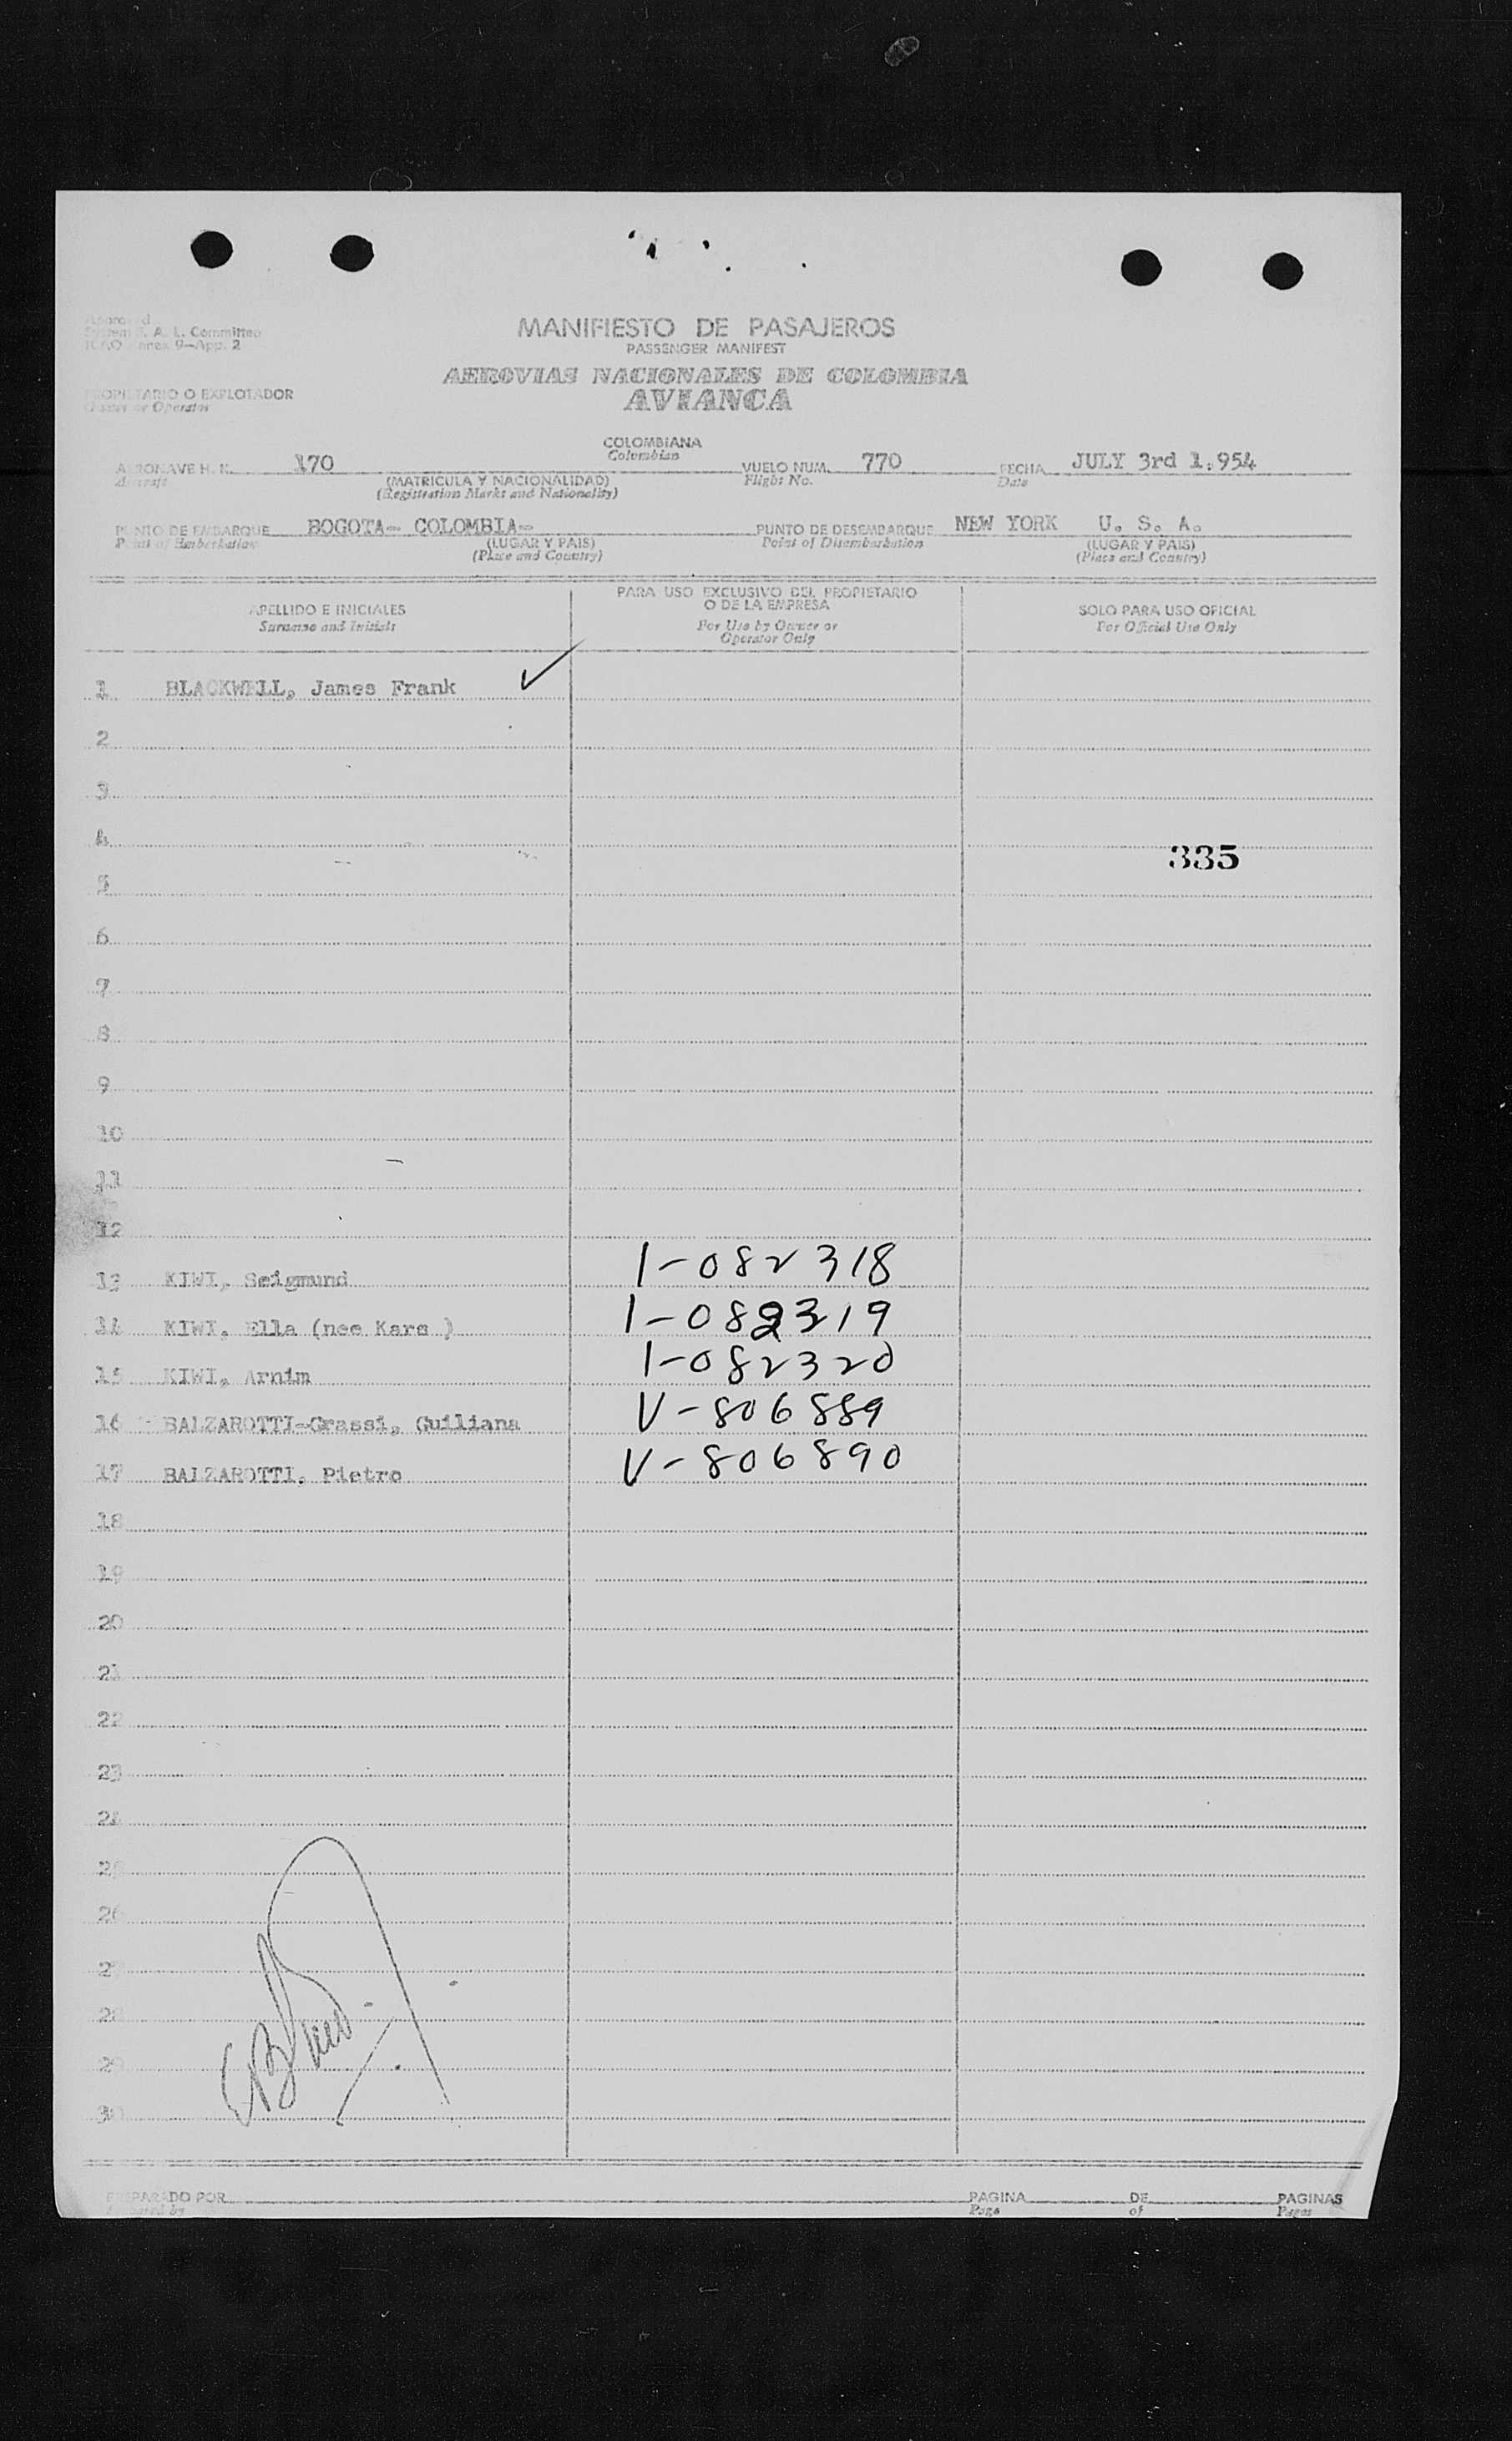 Approved
System F. A. L. Committee
ICAO Annex 9—App. 2
MANIFIESTO DE PASAJEROS
PASSENGER MANIFEST
AEROVIAS NACIONALES DE COLOMBIA
AVIANCA
PROPIETARIO O EXPLOTADOR
Owner or Operator
COLOMBIANA
Colombian
AERONAVE H. K. 170 VUELO NUM. 770 FECHA JULY 3rd 1.954
Aircraft (MATRICULA Y NACIONALIDAD) Flight No. Date
(Registration Marks and Nationality)
PUNTO DE EMBARQUE BOGOTA- COLOMBIA- PUNTO DE DESEMBARQUE NEW YORK U. S. A.
Point of Embarkation (LUGAR Y PAIS) Point of Disembarkation (LUGAR Y PAIS)
(Place and Country) (Place and Country)
APELLIDO E INICIALES
Surname and Initials
PARA USO EXCLUSIVO DEL PROPIETARIO
O DE LA EMPRESA
For Use by Owner or
Operator Only
SOLO PARA USO OFICIAL
For Official Use Only
1 BLACKWELL, James Frank ✓
2
3
4
335
5
6
7
8
9
10
11
12
13 KIWI, Seigmund 1-082318
14 KIWI, Ella (nee Kars ) 1-082319
15 KIWI, Arnim 1-082320
16 BALZAROTTI-Grassi, Guiliana V-806889
17 BALZAROTTI, Pietro V-806890
18
19
20
21
22
23
24
25
26
27
28
29
30
PREPARADO POR PAGINA DE PAGINAS
Prepared by Page of Pages